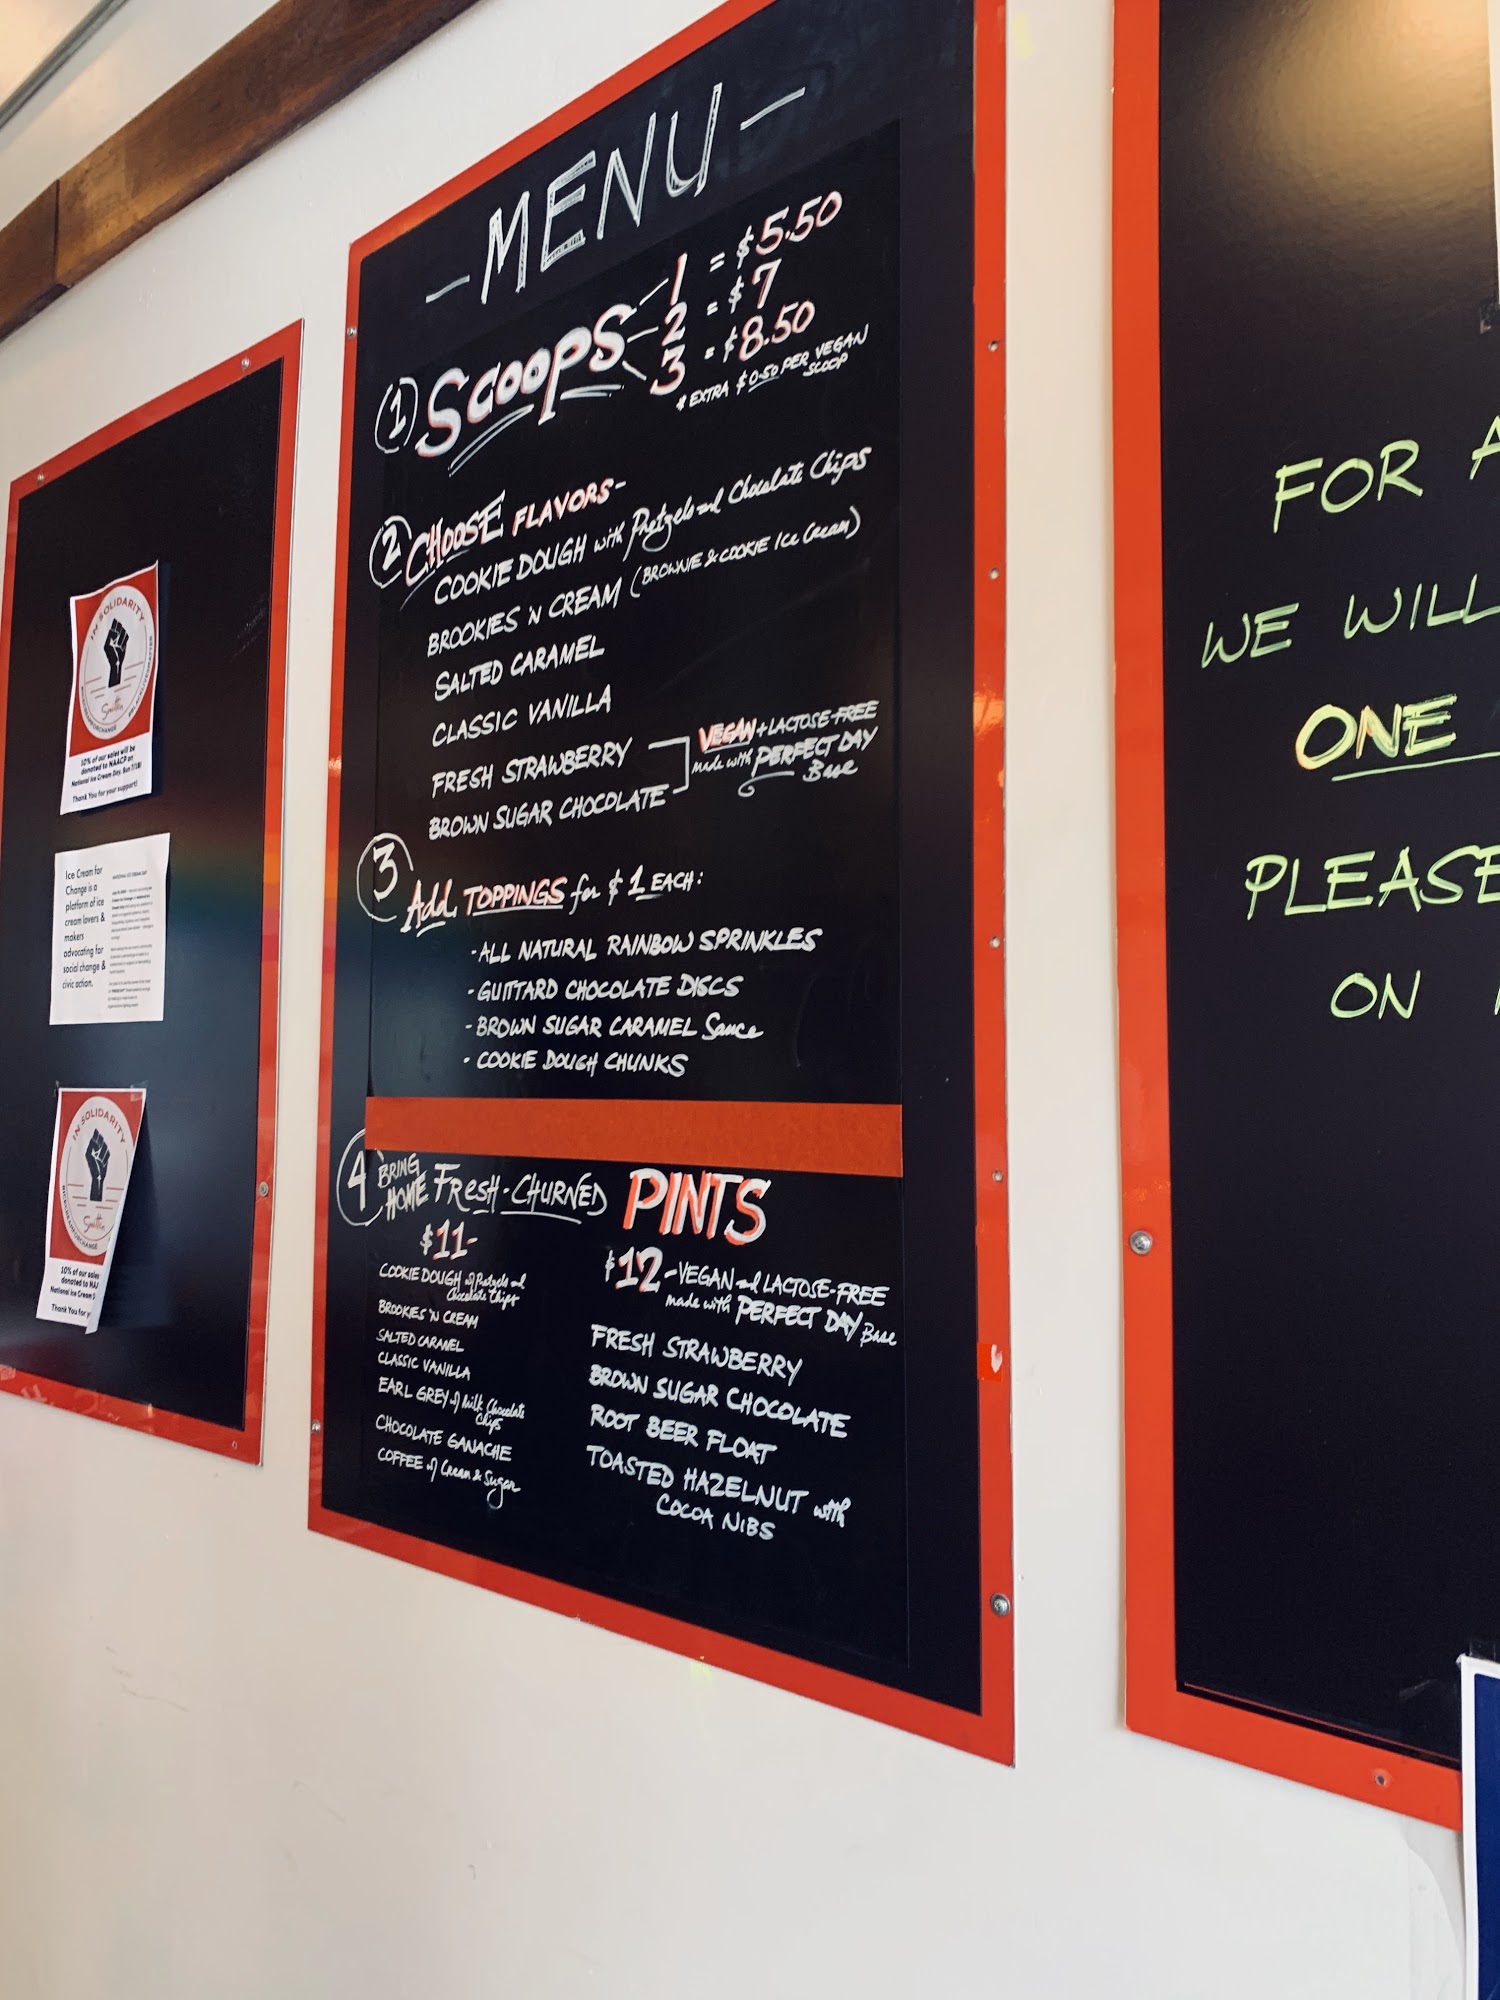 - MENU -
① SCOOPS - 1 = $5.50
- 2 = $7
- 3 = $8.50
* EXTRA $0.50 PER VEGAN
SCOOP
② CHOOSE FLAVORS-
COOKIE DOUGH with Pretzels and Chocolate Chips
BROOKIES 'N CREAM (BROWNIE & COOKIE Ice Cream)
SALTED CARAMEL
CLASSIC VANILLA
FRESH STRAWBERRY
BROWN SUGAR CHOCOLATE
VEGAN + LACTOSE-FREE
made with PERFECT DAY
Base
③ Add TOPPINGS for $1 EACH:
- ALL NATURAL RAINBOW SPRINKLES
- GUITTARD CHOCOLATE DISCS
- BROWN SUGAR CARAMEL Sauce
- COOKIE DOUGH CHUNKS
④ BRING
HOME FRESH-CHURNED PINTS
$11-
COOKIE DOUGH w/ Pretzels and
Chocolate Chips
BROOKIES 'N CREAM
SALTED CARAMEL
CLASSIC VANILLA
EARL GREY w/ Milk Chocolate
Chips
CHOCOLATE GANACHE
COFFEE w/ Cream & Sugar
$12 - VEGAN and LACTOSE-FREE
made with PERFECT DAY Base
FRESH STRAWBERRY
BROWN SUGAR CHOCOLATE
ROOT BEER FLOAT
TOASTED HAZELNUT with
COCOA NIBS
IN SOLIDARITY
Smitten
10% of our sales will be
donated to NAACP on
National Ice Cream Day, Sun 7/19!
Thank You for your support!
Ice Cream for
Change is a
platform of ice
cream lovers &
makers
advocating for
social change &
civic action.
NATIONAL ICE CREAM DAY
IN SOLIDARITY
Smitten
10% of our sales
donated to NA
National Ice Cream
Thank You for y
FOR A
WE WILL
ONE
PLEASE
ON